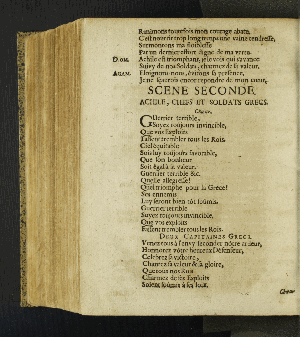 Ranimons toutesfois mon courage abatu,
C'est nourrir trop long-temps une vaine tendresse,
Surmontons ma foiblesse
Par un dernier effort digne de ma vertu.
DIOM. Achile est triomphant, je le vois qui s'avance
Suivy de nos Soldats, charmez de sa valeur.
AGAM. Eloignons-nous, évitons sa presence,
Je ne sçaurois encor répondre de mon cœur.
SCENE SECONDE
ACHILE, CHEFS ET SOLDATS GRECS.
Chœur,
GUerrier terrible,
Soyez toujours invincible,
Que vos Exploits
Fassent trembler tous les Rois.
Ciel équitable
Sois luy toujours favorable,
Que son bonheur
Soit égal à sa valeur.
Guerrier terrible &c.
Quelle allegresse!
Quel triomphe pour la Grece!
Ses ennemis
Luy seront bien-tôt soûmis.
Guerrier terrible
Soyez toujours invincible,
Que vos exploits
Fassent trembler tous les Rois.
DEUX CAPITAINES GRECS.
Venez tous à l'envy seconder nôtre ardeur,
Honnorez vôtre heureux Deffenseur,
Celebrez sa victoire,
Chantez sa valeur & sa gloire,
Que tous nos Rois
Charmez de ses Exploits
Soient soûmis à ses loix.
Chœur